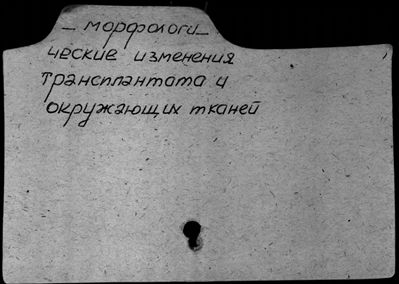 – морфологи–
ческие изменения
трансплантата и
окружающих тканей